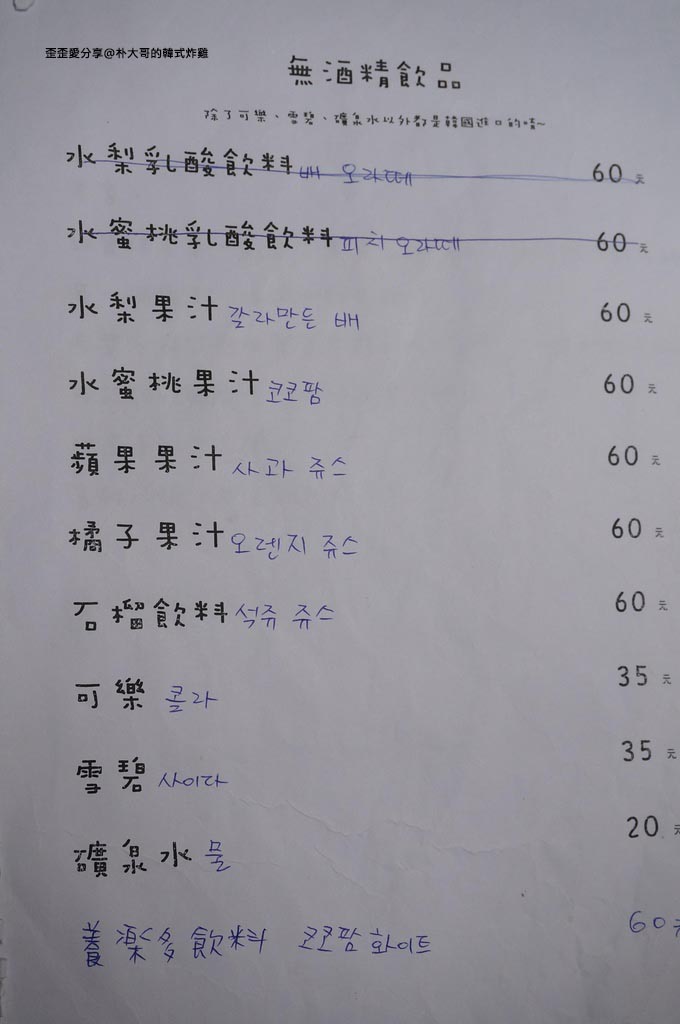 歪歪愛分享@朴大哥的韓式炸雞
無酒精飲品
除了可樂、雪碧、礦泉水以外都是韓國進口的唷~
水梨乳酸飲料 배 오라떼 60元
水蜜桃乳酸飲料 피치 오라떼 60元
水梨果汁 갈라만든 배 60元
水蜜桃果汁 코코팜 60元
蘋果果汁 사과 쥬스 60元
橘子果汁 오렌지 쥬스 60元
石榴飲料 석쥬 쥬스 60元
可樂 콜라 35元
雪碧 사이다 35元
礦泉水 물 20元
養楽多飲料 코코팜 화이트 60元